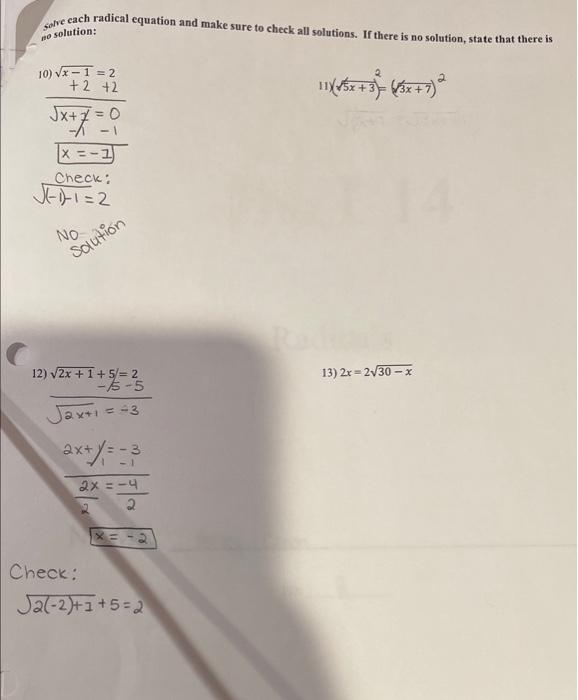 Solve each radical equation and make sure to check all solutions. If there is
no solution, state that there is
10) √x − 1 = 2
+2 +2
√x+1 = 0
-1 -1
x = -1
Check:
√(-1)-1 = 2
NO solution
11) (√5x + 3)² = (√3x + 7)²
12) √2x + 1 + 5 = 2
-5 -5
√2x+1 = -3
2x+1 = -3
-1 -1
2x = -4
2 2
x = -2
Check:
√2(-2)+1 + 5 = 2
13) 2x = 2√30 − x